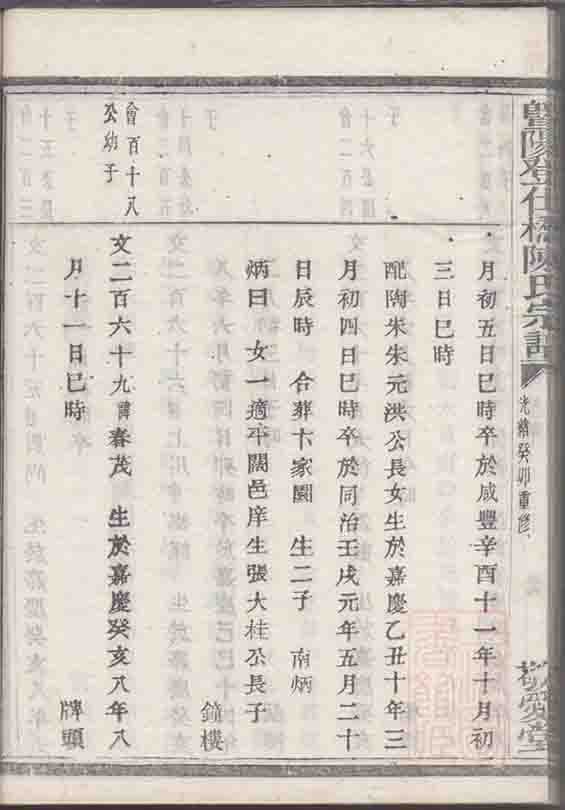 暨陽登仕橋陳氏宗譜
光緒癸卯重修
敬賢堂
月初五日巳時卒於咸豐辛酉十一年十月初
三日巳時
配陶朱朱元洪公長女生於嘉慶乙丑十年三
月初四日巳時卒於同治壬戌元年五月二十
日辰時 合葬卞家園 生二子 南炳
炳曰 女一適平闊邑庠生張大桂公長子
鐘樓
會百十八
公幼子
文二百六十九諱春茂 生於嘉慶癸亥八年八
月十一日巳時
牌頭